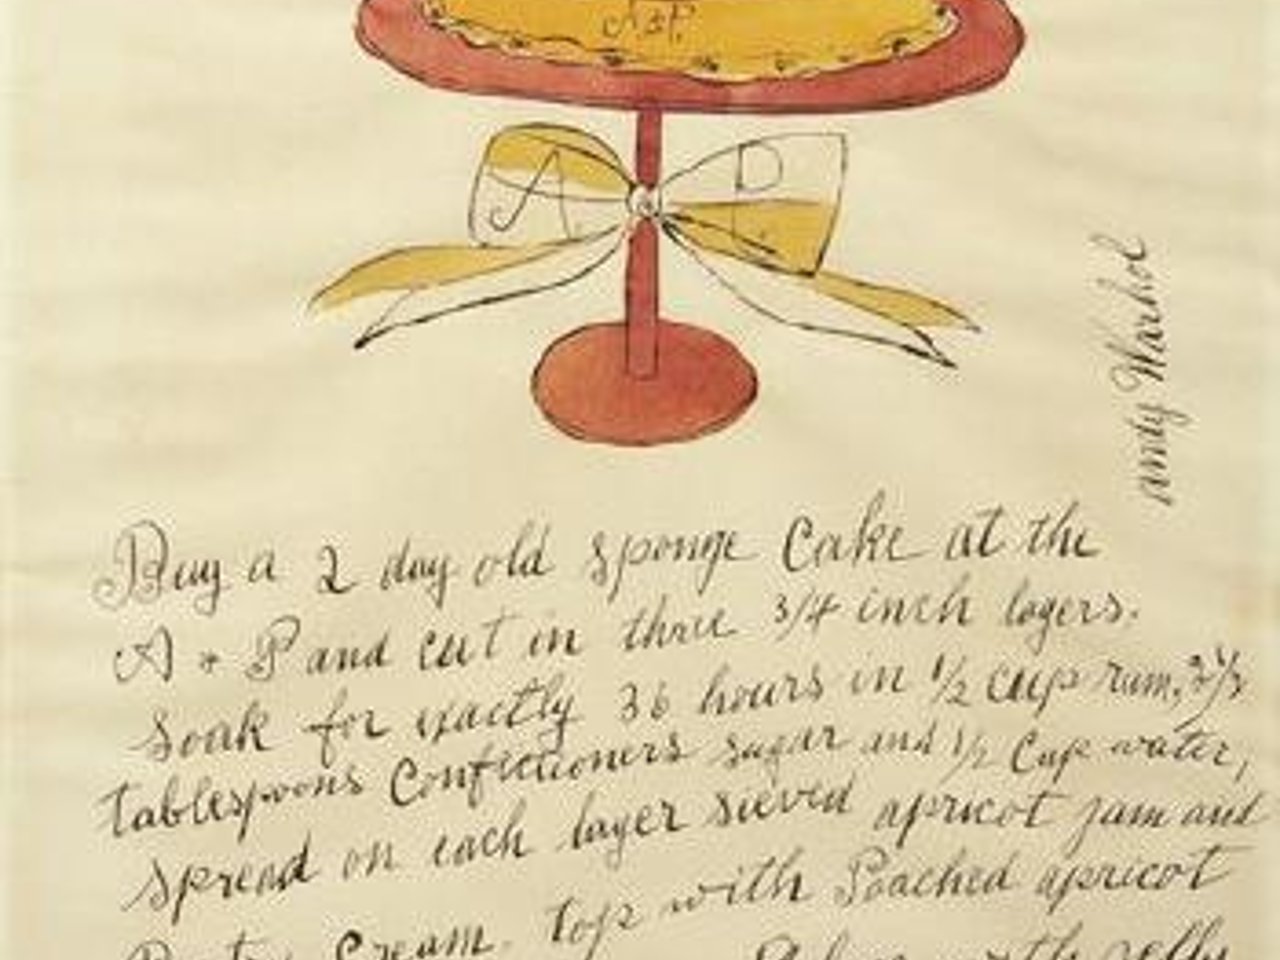 A+P
A P
andy Warhol
Buy a 2 day old sponge Cake at the
A + P and cut in three 3/4 inch layers.
Soak for exactly 36 hours in 1/2 cup rum, 2 1/2
tablespoons Confectioners sugar and 1/2 Cup water,
spread on each layer sieved apricot jam and
Pastry Cream. Top with Poached apricot
with jelly